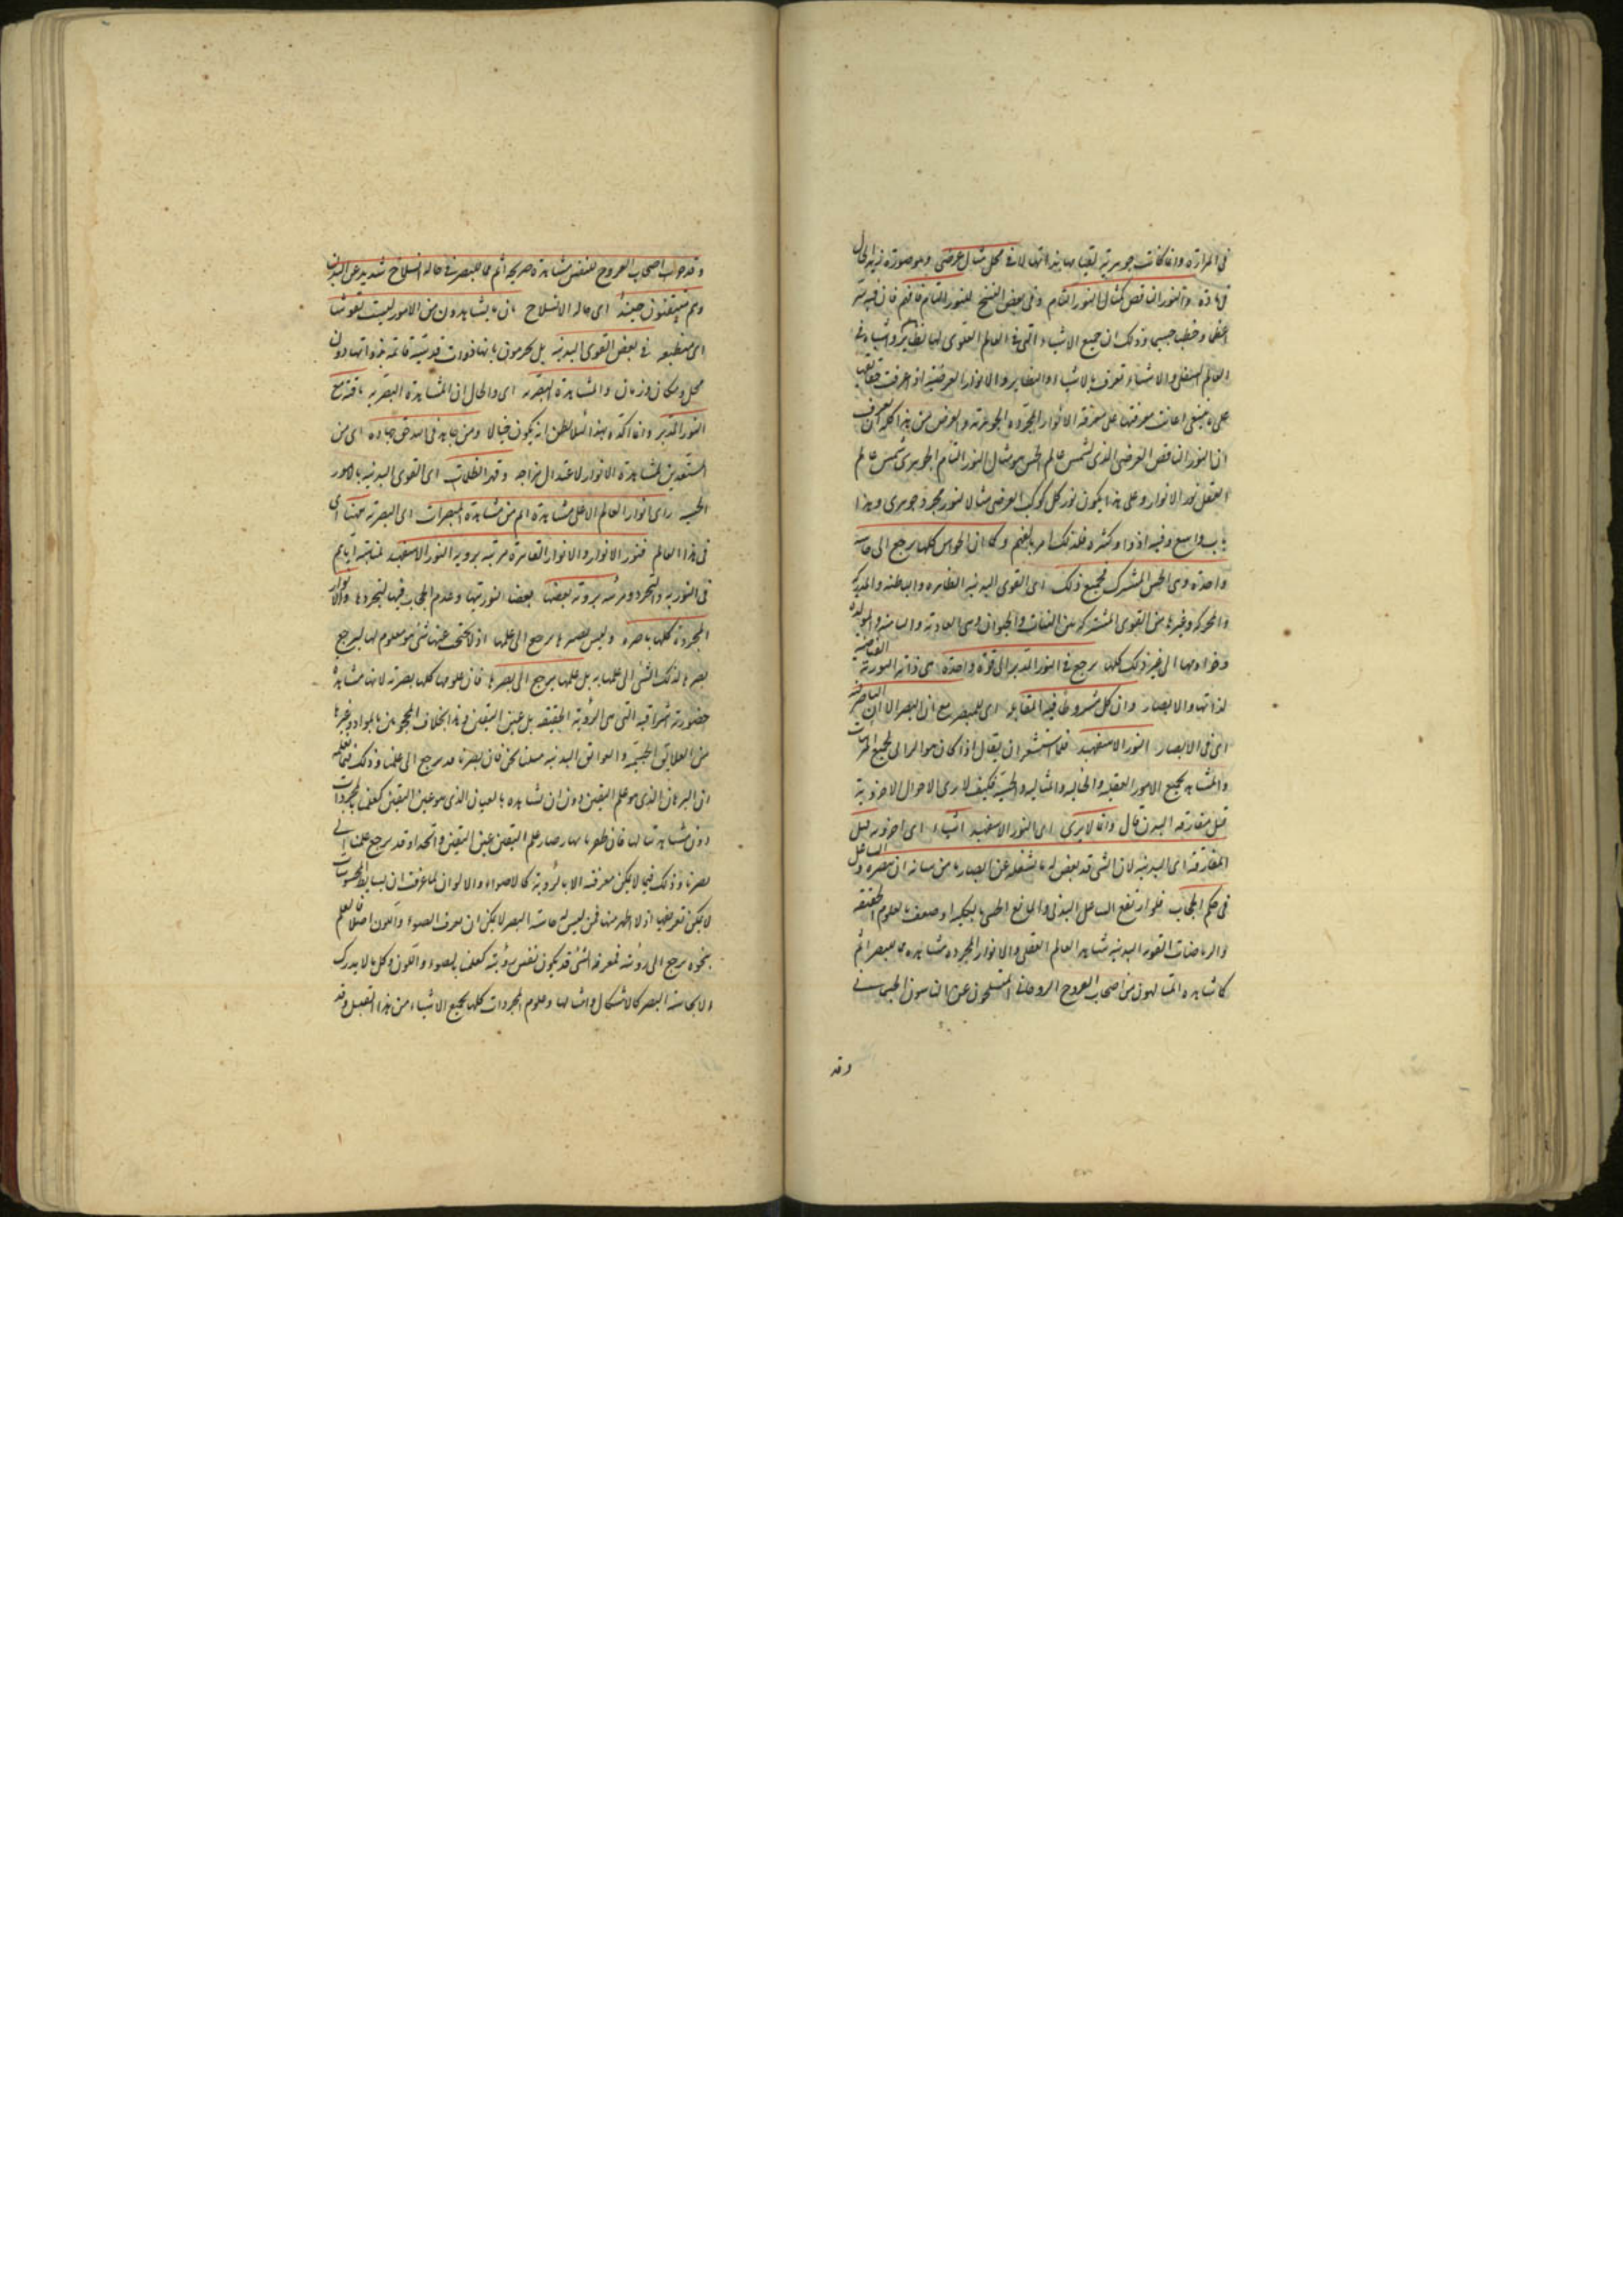 في المرآة وانما كانت جوهرية لقيامها بذاتها لا في محل مثال عرضي وهو صورة زيد الحال
في مادة والنور الناقص كمثال النور التام وفي بعض النسخ للنور التام فافهم فان فيه سر
عظيم وخطب جسيم وذلك ان جميع الاشياء التي في العالم العلوي لها نظائر واشباه في
العالم السفلي والاشياء تعرف بالاشباه والنظاير والانوار العرضية اذا عرفت حقائقها
على ما ينبغي اعانت معرفتها على معرفة الانوار المجردة الجوهرية والغرض من هذا كله ان تعرف
ان النور الناقص العرضي الذي لشمس عالم الحس هو مثال النور التام الجوهري شمس عالم
العقل نور الانوار وعلى هذا يكون نور كل كوكب العرضي مثالا لنور مجرد جوهري وهذا
باب واسع وفيه اذواق كثيرة فلذلك امر بالفهم وكما ان الحواس كلها يرجع الى حاسة
واحدة وهي الحس المشترك فجميع ذلك اي القوى البدنية الظاهرة والباطنة والمدركة
والمحركة وغيرها من القوى المشتركة بين النبات والحيوان وهي الغاذية والنامية والمولدة
وخوادمها الى غير ذلك كلها يرجع في النور المدبر الى قوة واحدة هي ذاته النورية الفياضة
لذاتها والابصار وان كان مشروطا فيه المقابلة اي للمبصر مع ان البصر الا ان الباصر فيه
اي في الابصار النور الاسفهبد فلما استشعر ان يقال اذا كان هو الرائي لجميع المرئيات
والمشاهد لجميع الامور العقلية والخيالية والمثالية والحسية فكيف لا يرى الاحوال الاخروية
قبل مفارقة البدن قال وانما لا يرى اي النور الاسفهبد اشياء اي اخروية قبل
المفارقة اي البدنية لان الشيء قد يعرض له ما يشغله عن ابصار ما من شانه ان يبصره والشاغل
في حكم الحجاب فلو ارتفع الشاغل البدني والمانع الحسي بالكلية او ضعف بالعلوم الحقيقية
والرياضات القوى البدنية شاهد العالم العقلي والانوار المجردة مشاهدة مما للبصر اتم
كما شاهده المتألهون من اصحاب العروج الروحاني المنسلخون عن الناسوت الجسماني
وقد
وقد جرب اصحاب العروج للنفس مشاهدة صريحة اتم مما للبصر في حالة انسلاخ شديد عن البدن
وهم متيقنون حينئذ اي حالة الانسلاخ بان ما يشاهدون من الامور ليست نقوشا
اي منطبعة في بعض القوى البدنية بل يجزمون بانها ذوات قدسية قائمة بذواتها دون
محل ومكان وزمان والمشاهدة البصرية اي والحال ان المشاهدة البصرية باقية مع
النور المدبر وانما اكده بهذا لئلا يظن انه يكون خيالا ومن جاهد في الله حق جهاده اي من
المستعدين لمشاهدة الانوار لاعتدال مزاجه وقهر الظلمات اي القوى البدنية بالامور
الحسية رأى انوار العالم الاعلى مشاهدة اتم من مشاهدة المبصرات اي البصرية ههنا اي
في هذا العالم فنور الانوار والانوار القاهرة مرئية برؤية النور الاسفهبد لمناسبته اياهم
في النورية والتجرد ومرئية برؤية بعضها بعضا لنوريتها وعدم الحجاب فيها لتجردها والانوار
المجردة كلها باصرة وليس بصرها يرجع الى علمها اذ لا يحتجب عنها شيء هو معلوم لها ليرجع
بصرها لذلك الشيء الى علمها به بل علمها يرجع الى بصرها فان علومها كلها بصرية لانها مشاهدة
حضورية اشراقية التي هي الرؤية الحقيقية بل عين اليقين وهذا بخلاف المحجوبين بالمواد وغيرها
من العلايق الجسمية والعوائق البدنية مثلنا نحن فان بصرنا قد يرجع الى علمنا وذلك فيما نعلمه
من البرهان الذي هو علم اليقين دون ان نشاهده بالعيان الذي هو عين اليقين كعلمنا بالمجردات
دون مشاهدتنا لها فان ظفرنا بها صار علم اليقين عين اليقين واتحدا وقد يرجع علمنا الى
بصرنا وذلك فيما لا يمكن معرفته الا بالرؤية كالاضواء والالوان لما عرفت ان بسايط المحسوسات
لا يمكن تعريفها اذ لا اظهر منها فمن ليس له حاسة البصر لا يمكن ان يعرف الضوء واللون اصلا فالعلم
بنحوه يرجع الى رؤيته فمعرفة الشيء قد يكون نفس رؤيته كعلمنا بالضوء واللون وكل ما لا يدرك
الا بحاسة البصر كالاشكال وامثالها وعلوم المجردات كلها بجميع الاشياء من هذا القبيل وقد